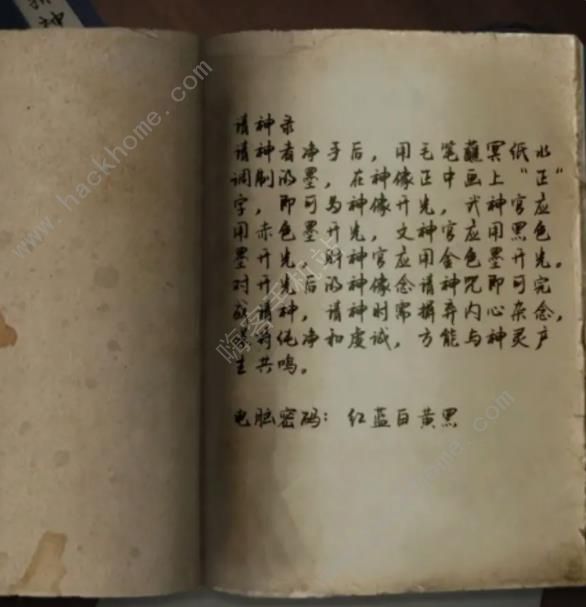 请神
www.hackhome.com
请神录
请神者净手后，用毛笔蘸冥纸水
调制的墨，在神像正中画上“正”
字，即可为神像开光，武神官应
用赤色墨开光，文神官应用黑色
墨开光，财神官应用金色墨开光。
对开光后的神像念请神咒即可完
成请神，请神时需摒弃内心杂念，
保持纯净和虔诚，方能与神灵产
生共鸣。
嗨客手机站
电脑密码：红蓝白黄黑
www.hackhome.com